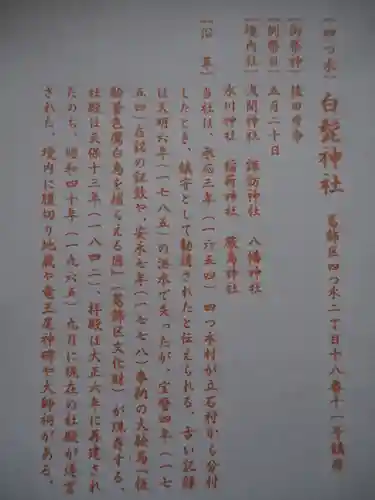 ［四つ木］白髭神社　葛飾区四つ木二丁目十八番十一号鎮座
［御祭神］猿田彦命
［例祭日］五月二十日
［境内社］浅間神社　諏訪神社　八幡神社
氷川神社　稲荷神社　厳島神社
［沿　革］当社は、承応三年（一六五四）四つ木村が立石村から分村
したとき、鎮守として勧請されたと伝えられる。古い記録
は天明六年（一七八五）の洪水で失ったが、宝暦四年（一七
五四）在銘の記録や、安永七年（一七七八）奉納の大絵馬「佐
助養老瀧白鳥を捕らえる図」（葛飾区文化財）が現存する。
社殿は天保十三年（一八四二）、拝殿は大正六年に再建され
たのち、昭和四十年（一九六五）九月に現在の社殿が造営
された。境内に腹切り地蔵や竜王尾神碑や大師祠がある。